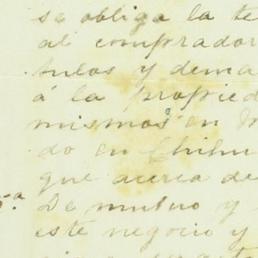 se obliga la te
al comprador
tulos y dema
á la propied
mismos en M
do en Chihu
que acerca de
5.ª De mutuo y
este negocio y